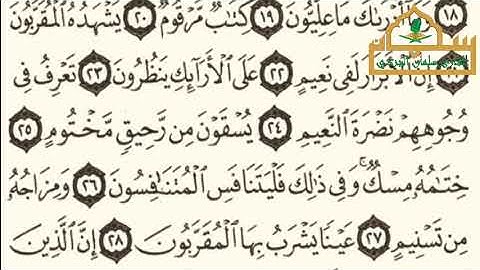 ١٨ وَمَآ أَدْرَىٰكَ مَا عِلِّيُّونَ ١٩ كِتَٰبٌ مَّرْقُومٌ ٢٠ يَشْهَدُهُ ٱلْمُقَرَّبُونَ
٢١ إِنَّ ٱلْأَبْرَارَ لَفِى نَعِيمٍ ٢٢ عَلَى ٱلْأَرَآئِكِ يَنظُرُونَ ٢٣ تَعْرِفُ فِى
وُجُوهِهِمْ نَضْرَةَ ٱلنَّعِيمِ ٢٤ يُسْقَوْنَ مِن رَّحِيقٍ مَّخْتُومٍ ٢٥
خِتَٰمُهُۥ مِسْكٌ ۚ وَفِى ذَٰلِكَ فَلْيَتَنَافَسِ ٱلْمُتَنَٰفِسُونَ ٢٦ وَمِزَاجُهُۥ
مِن تَسْنِيمٍ ٢٧ عَيْنًا يَشْرَبُ بِهَا ٱلْمُقَرَّبُونَ ٢٨ إِنَّ ٱلَّذِينَ